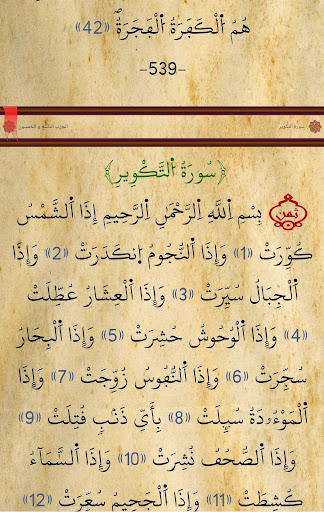 هُمُ اُ۬لْكَفَرَةُ اُ۬لْفَجَرَةُۖ «42»
-539-
سورة التكوير
الحزب التاسع و الخمسون
﴿سُورَةُ اُ۬لتَّكْوِيرِ﴾
ثمن بِسْمِ اِ۬للَّهِ اِ۬لرَّحْمَٰنِ اِ۬لرَّحِيمِ إِذَا اَ۬لشَّمْسُ
كُوِّرَتْ «1» وَإِذَا اَ۬لنُّجُومُ اُ۪نكَدَرَتْ «2» وَإِذَا
اَ۬لْجِبَالُ سُيِّرَتْ «3» وَإِذَا اَ۬لْعِشَارُ عُطِّلَتْ
«4» وَإِذَا اَ۬لْوُحُوشُ حُشِرَتْ «5» وَإِذَا اَ۬لْبِحَارُ
سُجِّرَتْ «6» وَإِذَا اَ۬لنُّفُوسُ زُوِّجَتْ «7» وَإِذَا
اَ۬لْمَوْءُۥدَةُ سُئِلَتْ «8» بِأَيِّ ذَنۢبٖ قُتِلَتْ «9»
وَإِذَا اَ۬لصُّحُفُ نُشِرَتْ «10» وَإِذَا اَ۬لسَّمَآءُ
كُشِطَتْ «11» وَإِذَا اَ۬لْجَحِيمُ سُعِّرَتْ «12»